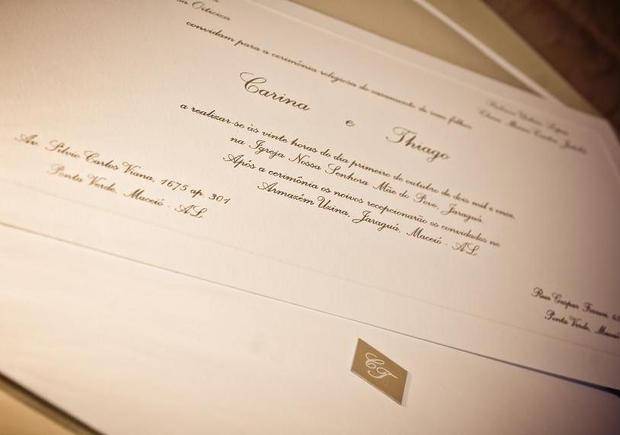 convidam para a cerimônia religiosa do casamento de seus filhos
Carina
e
Thiago
a realizar-se às vinte horas do dia primeiro de outubro de dois mil e onze,
na Igreja Nossa Senhora Mãe do Povo, Jaraguá.
Após a cerimônia os noivos recepcionarão os convidados no
Armazém Uzina, Jaraguá, Maceió - AL
Av. Silvio Carlos Viana, 1675 ap. 301
Ponta Verde, Maceió - AL
Rua Gaspar
Ponta Verde, Maceió
CT